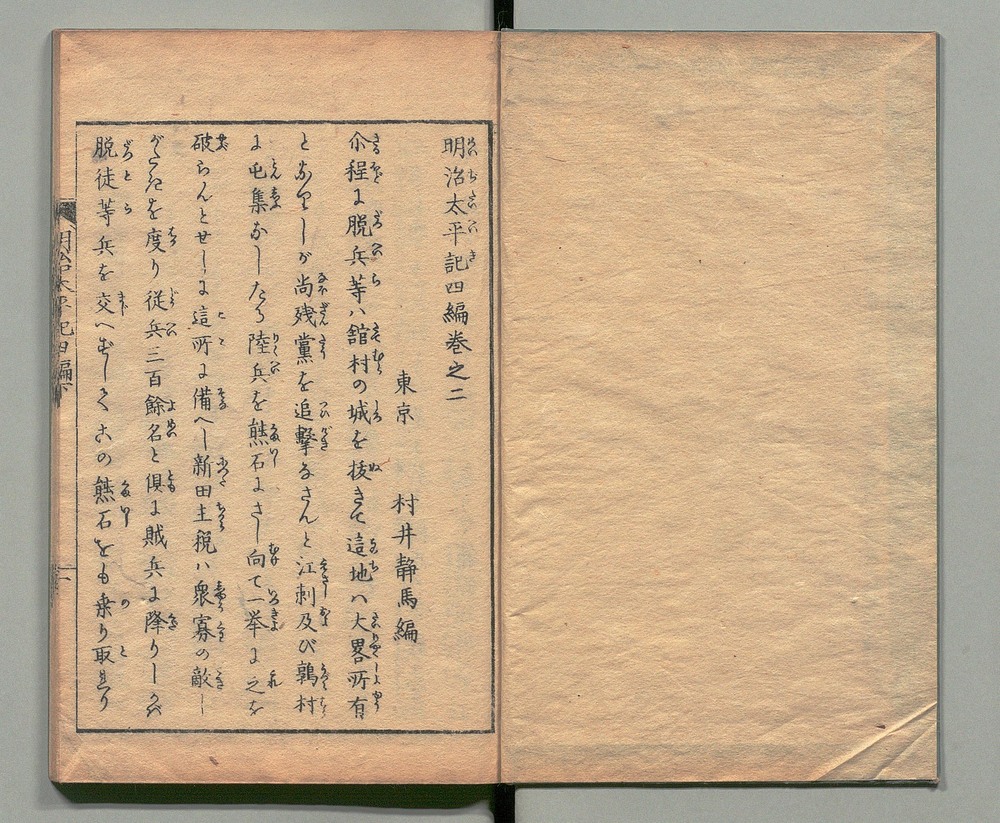 明治太平記四編巻之二
東京　村井静馬編
尒程に脱兵等ハ舘村の城を抜きて這地ハ大畧所有
となりしが尚残黨を追撃なさんと江刺及び鶉村
に屯集なしたる陸兵を熊石にさし向て一挙に之を
破らんとせしに這所に備へし新田主税ハ衆寡の敵し
がたきを度り従兵三百餘名と倶に賊兵に降りしかバ
脱徒等兵を交へずしてこの熊石をも乗り取れり
明治太平記四編下